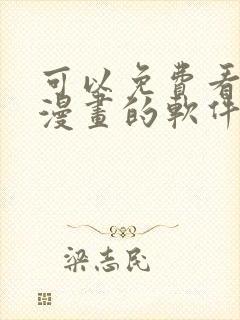 可以免費看
漫畫的軟件
梁志民